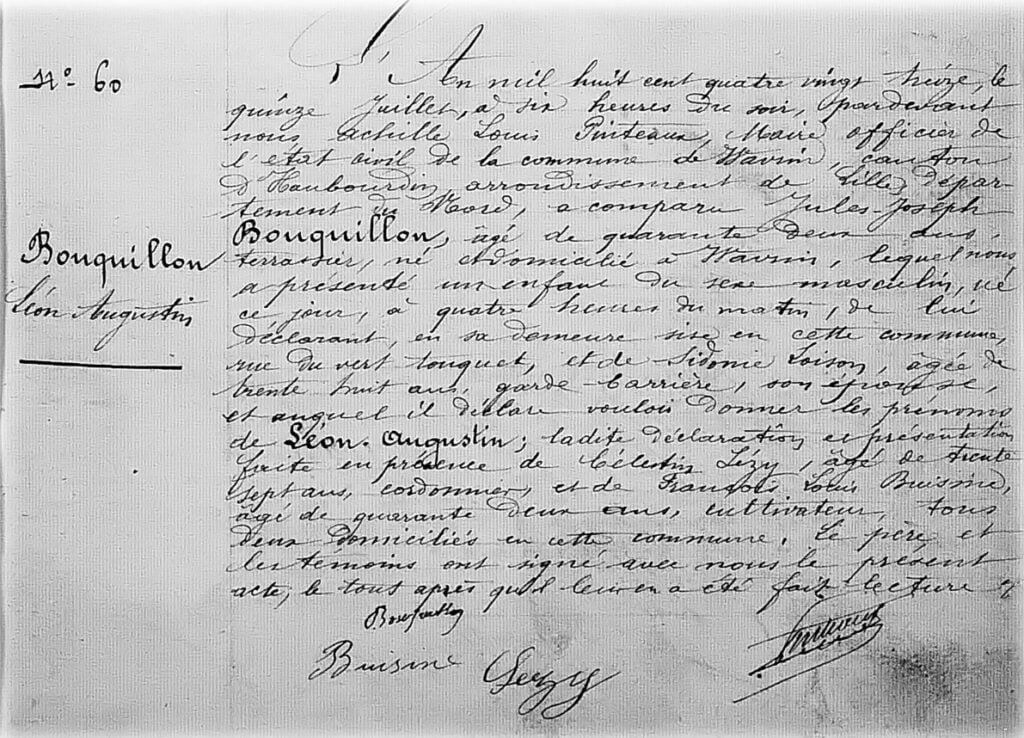 N° 60
L'An mil huit cent quatre vingt treize, le
quinze Juillet, à six heures du soir, pardevant
nous Achille Louis Pinteaux, Maire officier de
l'état civil de la commune de Wavrin, canton
d'Haubourdin, arrondissement de Lille, dépar-
tement du Nord, a comparu Jules-Joseph
Bouquillon, âgé de quarante deux ans,
terrassier, né et domicilié à Wavrin, lequel nous
a présenté un enfant du sexe masculin, né
ce jour, à quatre heures du matin, de lui
déclarant, en sa demeure sise en cette commune,
rue du vert touquet, et de Sidonie Loison, âgée de
trente huit ans, garde-barrière, son épouse,
et auquel il déclare vouloir donner les prénoms
de Léon-Augustin; ladite déclaration et présentation
faite en présence de Célestin Lézy, âgé de trente
sept ans, cordonnier, et de François Louis Buisine,
âgé de quarante deux ans, cultivateur, tous
deux domiciliés en cette commune. Le père et
les témoins ont signé avec nous le présent
acte, le tous après qu'il leur en a été fait lecture
Bouquillon
Léon Augustin
Bouquillon
Buisine Lezy